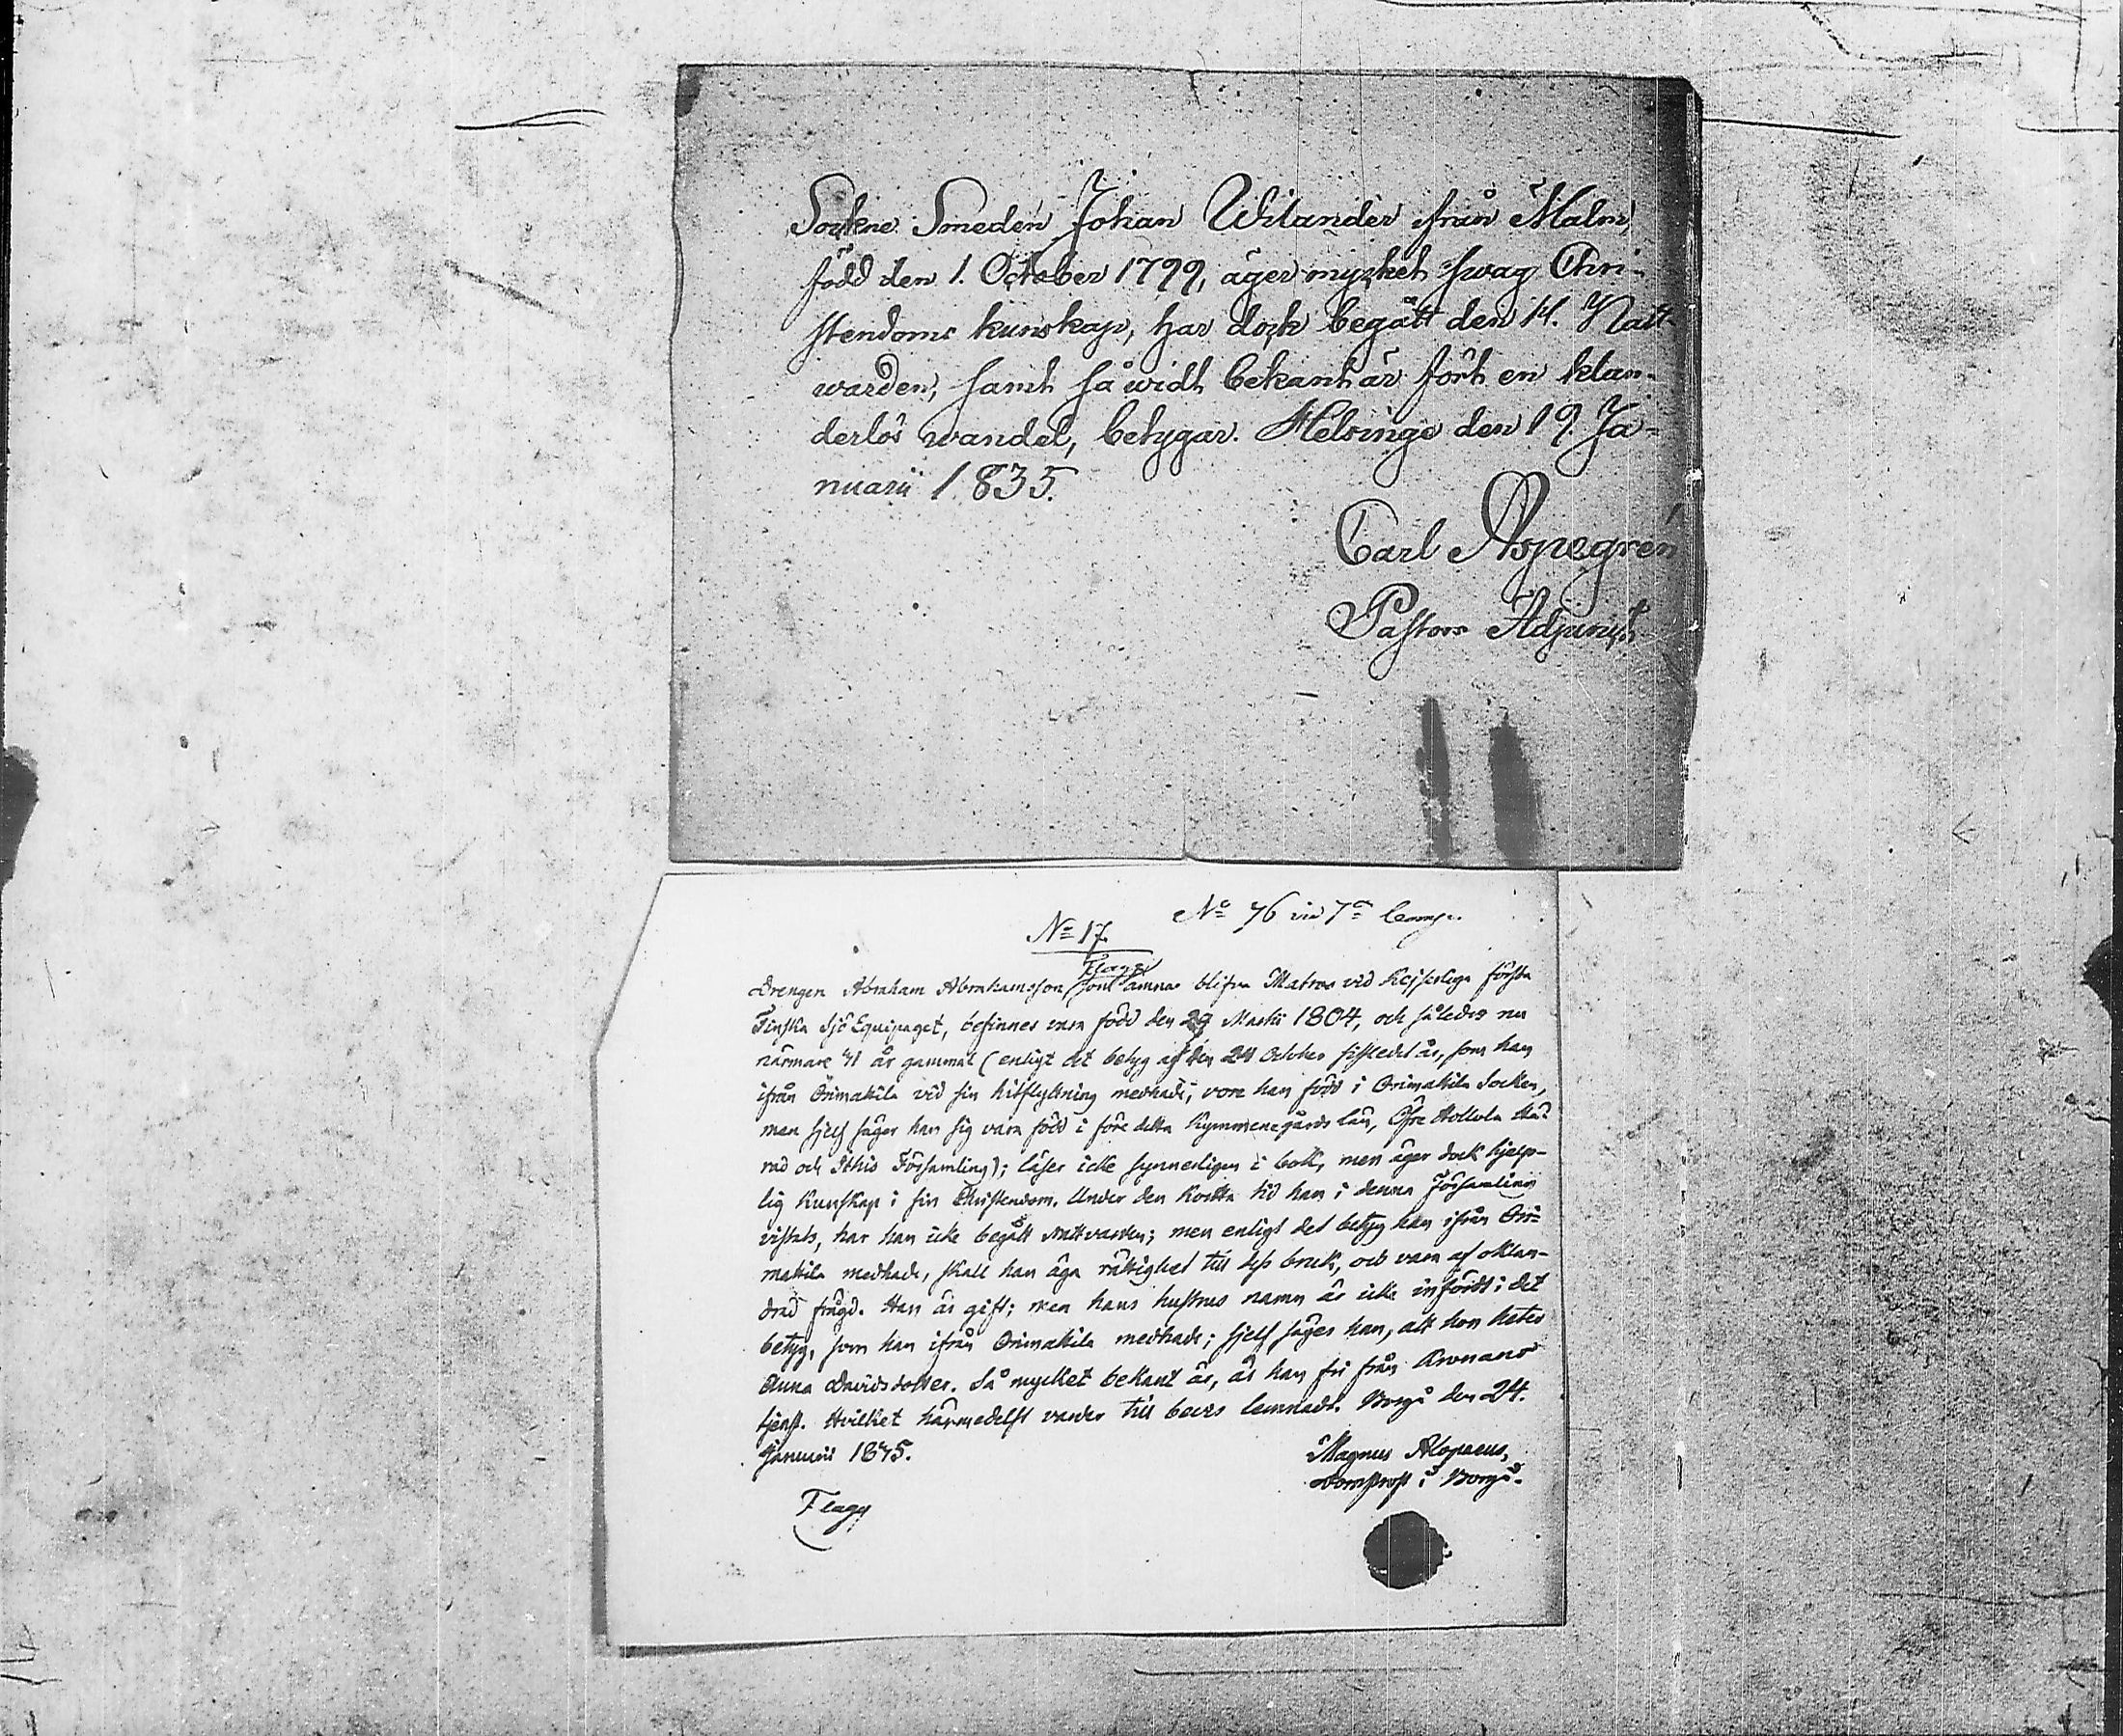 Sockne Smeden Johan Wilander från Malm,
född den 1. October 1799, äger mycket swag Chri-
stendoms kunskap, har dock begått den H. Natt-
warden, samt så widt bekant är fört en klan-
derlös wandel, betygar. Helsinge den 19. Ja-
nuarii 1835.
Carl Aspegrén
Pastors Adjunct
No 76 vid 7de Comp.
No 17.
Flagg
Drengen Abraham Abrahamsson som ämnar blifva Matros vid Kejserliga första
Finska Sjö Equipaget, befinnes vara född den 29 Martii 1804, och således nu
närmare 41 år gammal (enligt det betyg af den 24 October sistledet år, som han
ifrån Orimattila vid sin hitflyttning medhade, vore han född i Orimattila Socken,
men sjelf säger han sig vara född i före detta Kymmenegårds län, Öfre Hollola Hä-
rad och Ithis Församling); läser icke synnerligen i bok, men äger dock hjelp-
lig kunskap i sin Christendom. Under den korta tid han i denna Församling
vistats, har han icke begått Nattvarden; men enligt det betyg han ifrån Ori-
mattila medhade, skall han äga rättighet till dess bruk, och vara af oklan-
drad frägd. Han är gift; men hans hustrus namn är icke infördt i det
betyg, som han ifrån Orimattila medhade; sjelf säger han, att hon heter
Anna Davidsdotter. Så mycket bekant är, är han fri från Kronans
tjenst. Hvilket härmedelst varder till bevis lemnadt. Borgå den 24.
Januarii 1845.
Magnus Alopaeus,
Domprost i Borgå.
Flagg